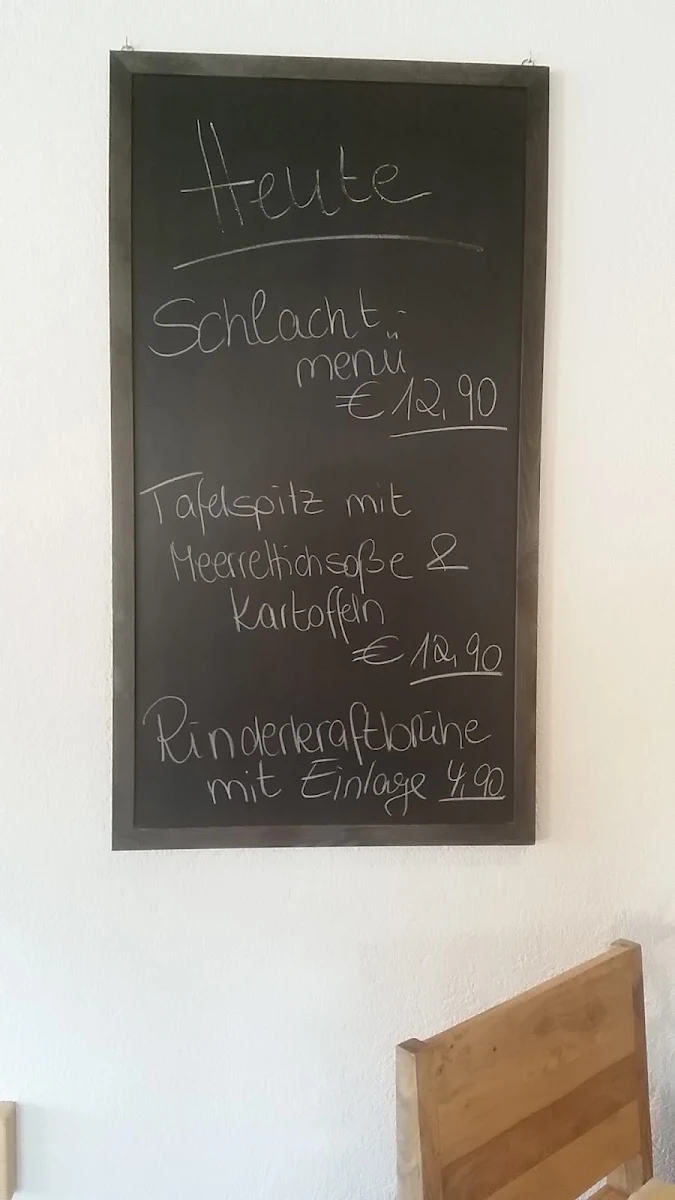 Heute
Schlacht-
menü
€ 12,90
Tafelspitz mit
Meerrettichsoße &
Kartoffeln
€ 12,90
Rinderkraftbrühe
mit Einlage 4,90